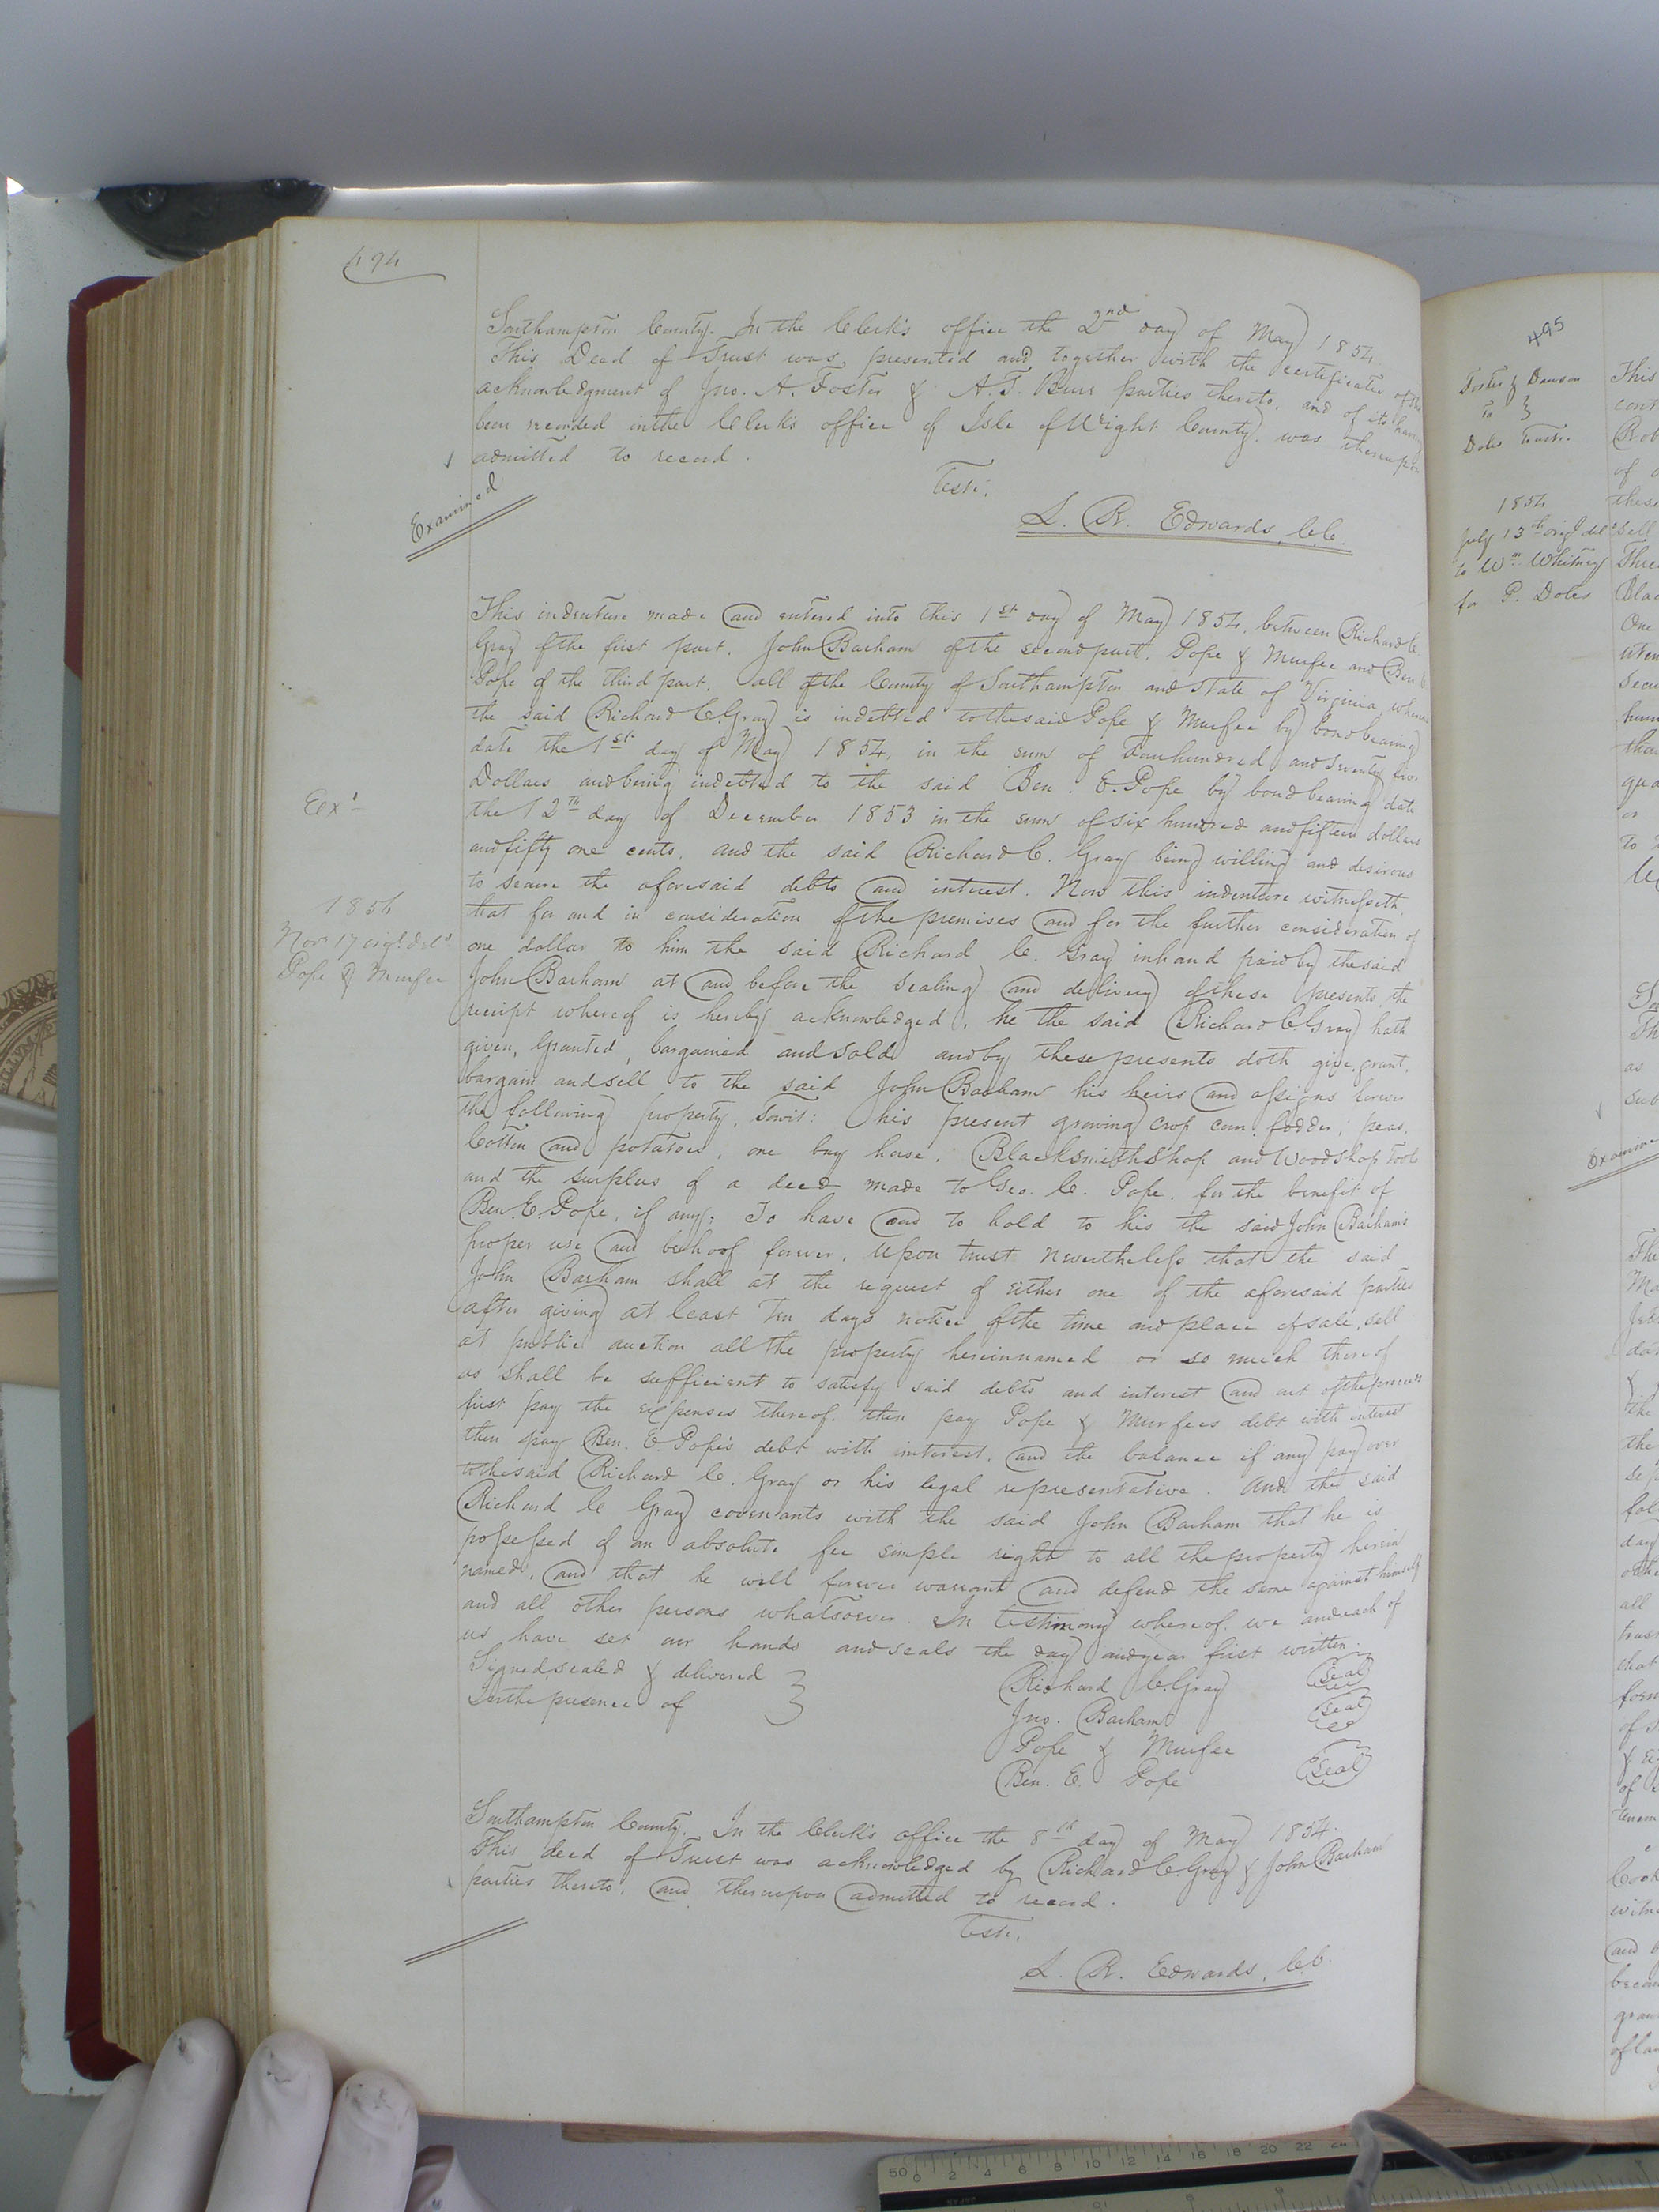 494
Southampton County. In the Clerk's office the 2nd day of May 1854.
This Deed of Trust was presented and together with the certificates of the
acknowledgment of Jno. A. Foster & A. T. parties thereto, and of its having
been recorded in the Clerk's office of Isle of Wight County, was thereupon
admitted to record.
Teste.
Examined
L. R. Edwards, C.C.
This indenture made and entered into this 1st day of May 1854, between Richard C.
Gray of the first part, John Barham of the second part, Pope & Murfee and Ben E.
Pope of the third part, all of the County of Southampton and State of Virginia, whereas
the said Richard C. Gray is indebted to the said Pope & Murfee by bond bearing
date the 1st day of May 1854, in the sum of Four hundred and seventy
Dollars and being indebted to the said Ben. E. Pope by bond bearing date
Exd
the 12th day of December 1853 in the sum of six hundred and fifteen dollars
and fifty one cents, and the said Richard C. Gray being willing and desirous
to secure the aforesaid debts and interest. Now this indenture witnesseth,
that for and in consideration of the premises and for the further consideration of
one dollar to him the said Richard C. Gray in hand paid by the said
John Barham at and before the sealing and delivery of these presents, the
receipt whereof is hereby acknowledged, he the said Richard C Gray hath
given, Granted, bargained and sold and by these presents doth give, grant,
bargain and sell to the said John Barham his heirs and assigns forever
the following property, Towit: his present growing crop corn, fodder, peas,
Cotton and potatoes, one bay horse, Blacksmith Shop and Woodshop Tools
and the surplus of a deed made to Geo. C. Pope, for the benefit of
Ben. E. Pope, if any; To have and to hold to his the said John Barham's
proper use and behoof forever. Upon trust nevertheless that the said
John Barham shall at the request of either one of the aforesaid parties
after giving at least Ten days notice of the time and place of sale, sell
at public auction all the property herein named or so much thereof
as shall be sufficient to satisfy said debts and interest and out of the proceeds
first pay the expenses thereof, then pay Pope & Murfees debt with interest
then pay Ben. E. Pope's debt with interest, and the balance if any pay over
to the said Richard C. Gray or his legal representative. And the said
Richard C Gray covenants with the said John Barham that he is
possessed of an absolute fee simple right to all the property herein
named, and that he will forever warrant and defend the same against himself
and all other persons whatsoever. In testimony whereof we and each of
us have set our hands and seals the day and year first written.
1854
Nov. 17 orig. deld
Pope & Murfee
Signed, sealed & delivered }
In the presence of
Richard C. Gray (Seal)
Jno. Barham (Seal)
Pope & Murfee
Ben. E. Pope (Seal)
Southampton County. In the Clerk's office the 8th day of May 1854.
This deed of Trust was acknowledged by Richard C. Gray & John Barham
parties thereto, and thereupon admitted to record.
Teste.
L. R. Edwards, C.C.
495
Foster & Dawson
To }
Doles Trustee
1854
July 13th orig. deld
to Wm Whitney
for P. Doles
This
of
these
sell
Three
One
to
The
as
Examine
The
the
all
that
of
and
50 0 2 4 6 8 10 12 14 16 18 20 22 24